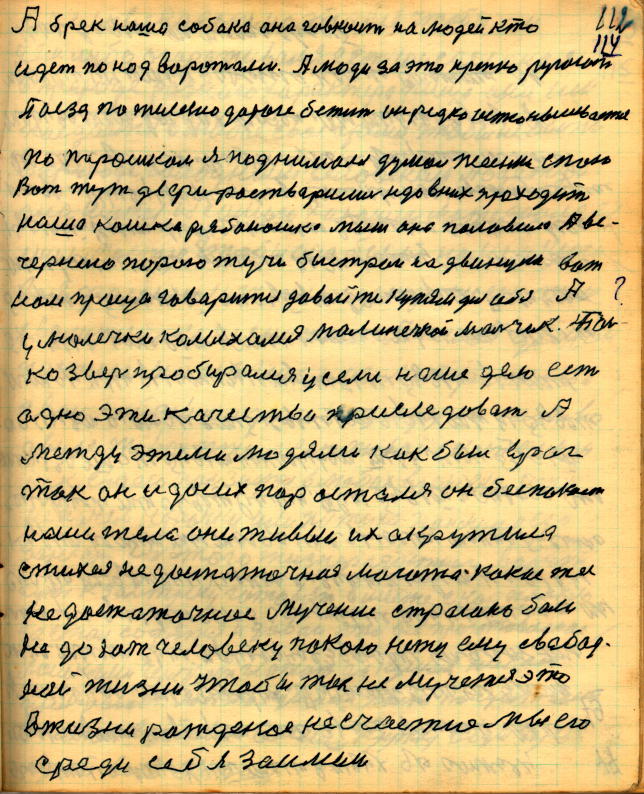 112
114
А брек наша собака она гавкоит на людей кто
идет по над варотами. А люди за это крепко ругают
Поезд по железно дороге бежит он редко останавливается
по порошкам я поднимаюся думаю песни спою
Вот тут двери растварили и до вних проходит
наша кошка рябаношка мыш она половило А ве-
чернею порою тучи быстрои надвинули вот
нам проща гаварити давайте купим для себя А ?
у люлечки колыхался малинечкой мальчик. Толь-
ко звер пробирался у сели наше дело ест
адно эти качества приследоват А
между этими людями как был враг
так он и до сих пор остался он беспокоит
наши тела они живыи их окрутила
стихея недостаточная магота. какие же
недостаточное мучение страгано боли
не дают человеку покою нету ему свабод-
ной жизни Чтобы так не мучится это
в жизни рожденое несчастие мы его
среди себя заимели